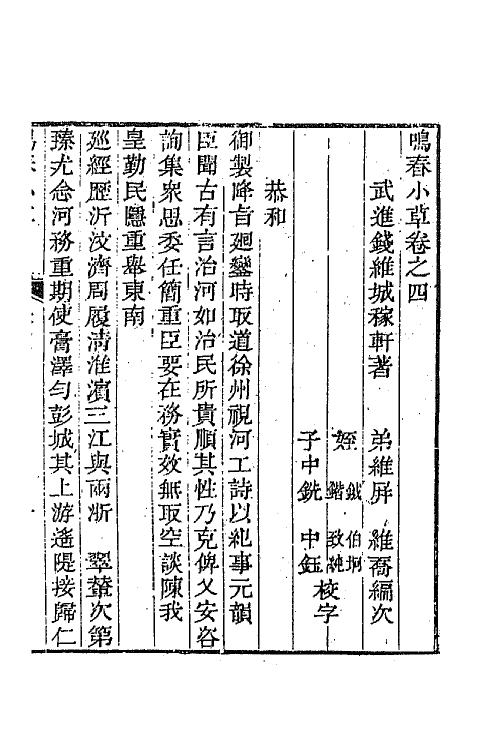 鳴春小草卷之四
武進錢維城稼軒著　弟維屏　維喬編次
姪　鉞　伯坰
鍇　致純
子中銑　中鈺校字
恭和
御製降旨廻鑾時取道徐州視河工詩以紀事元韻
臣聞古有言治河如治民所貴順其性乃克俾乂安咨
詢集衆思委任簡重臣要在務實效無取空談陳我
皇勤民隱重舉東南
廵經歷沂汶濟周履淸淮濵三江與兩浙　翠輦次第
臻尤念河務重期使膏澤勻彭城其上游遙隄接歸仁